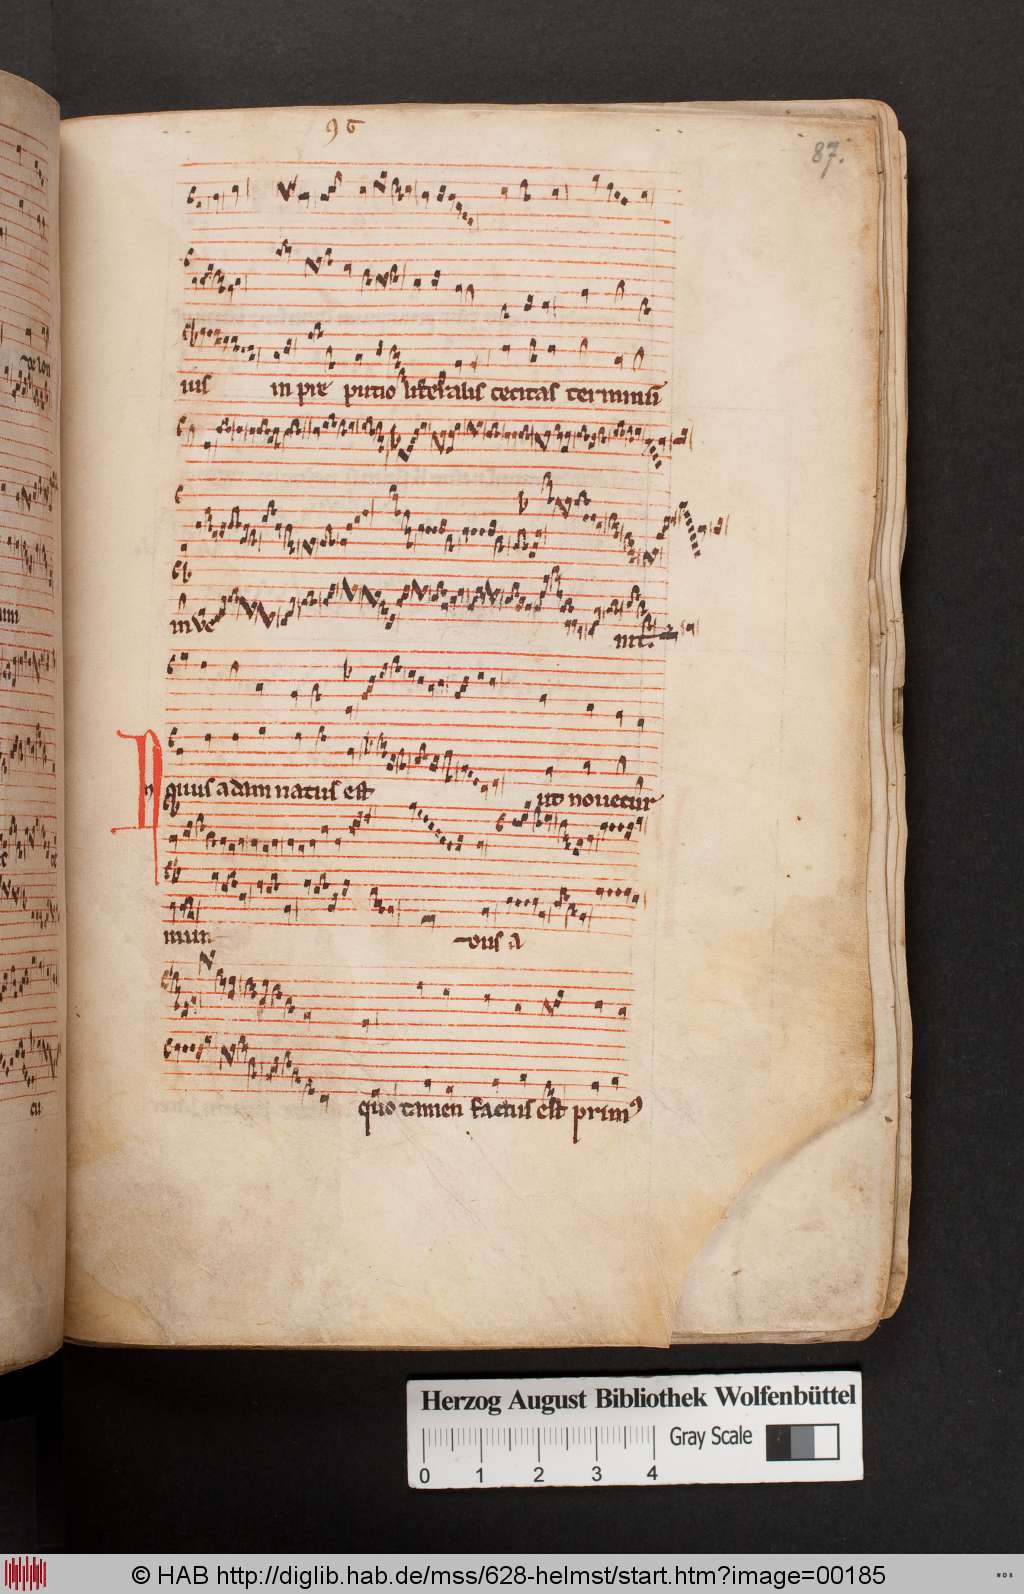 96
87.
uis in pre putio litteralis cecitas terminum
inve nit.
Novus adam natus est ut novetur
mun dus a
quo tamen factus est prim9
cu
Herzog August Bibliothek Wolfenbüttel
Gray Scale
0 1 2 3 4
© HAB http://diglib.hab.de/mss/628-helmst/start.htm?image=00185